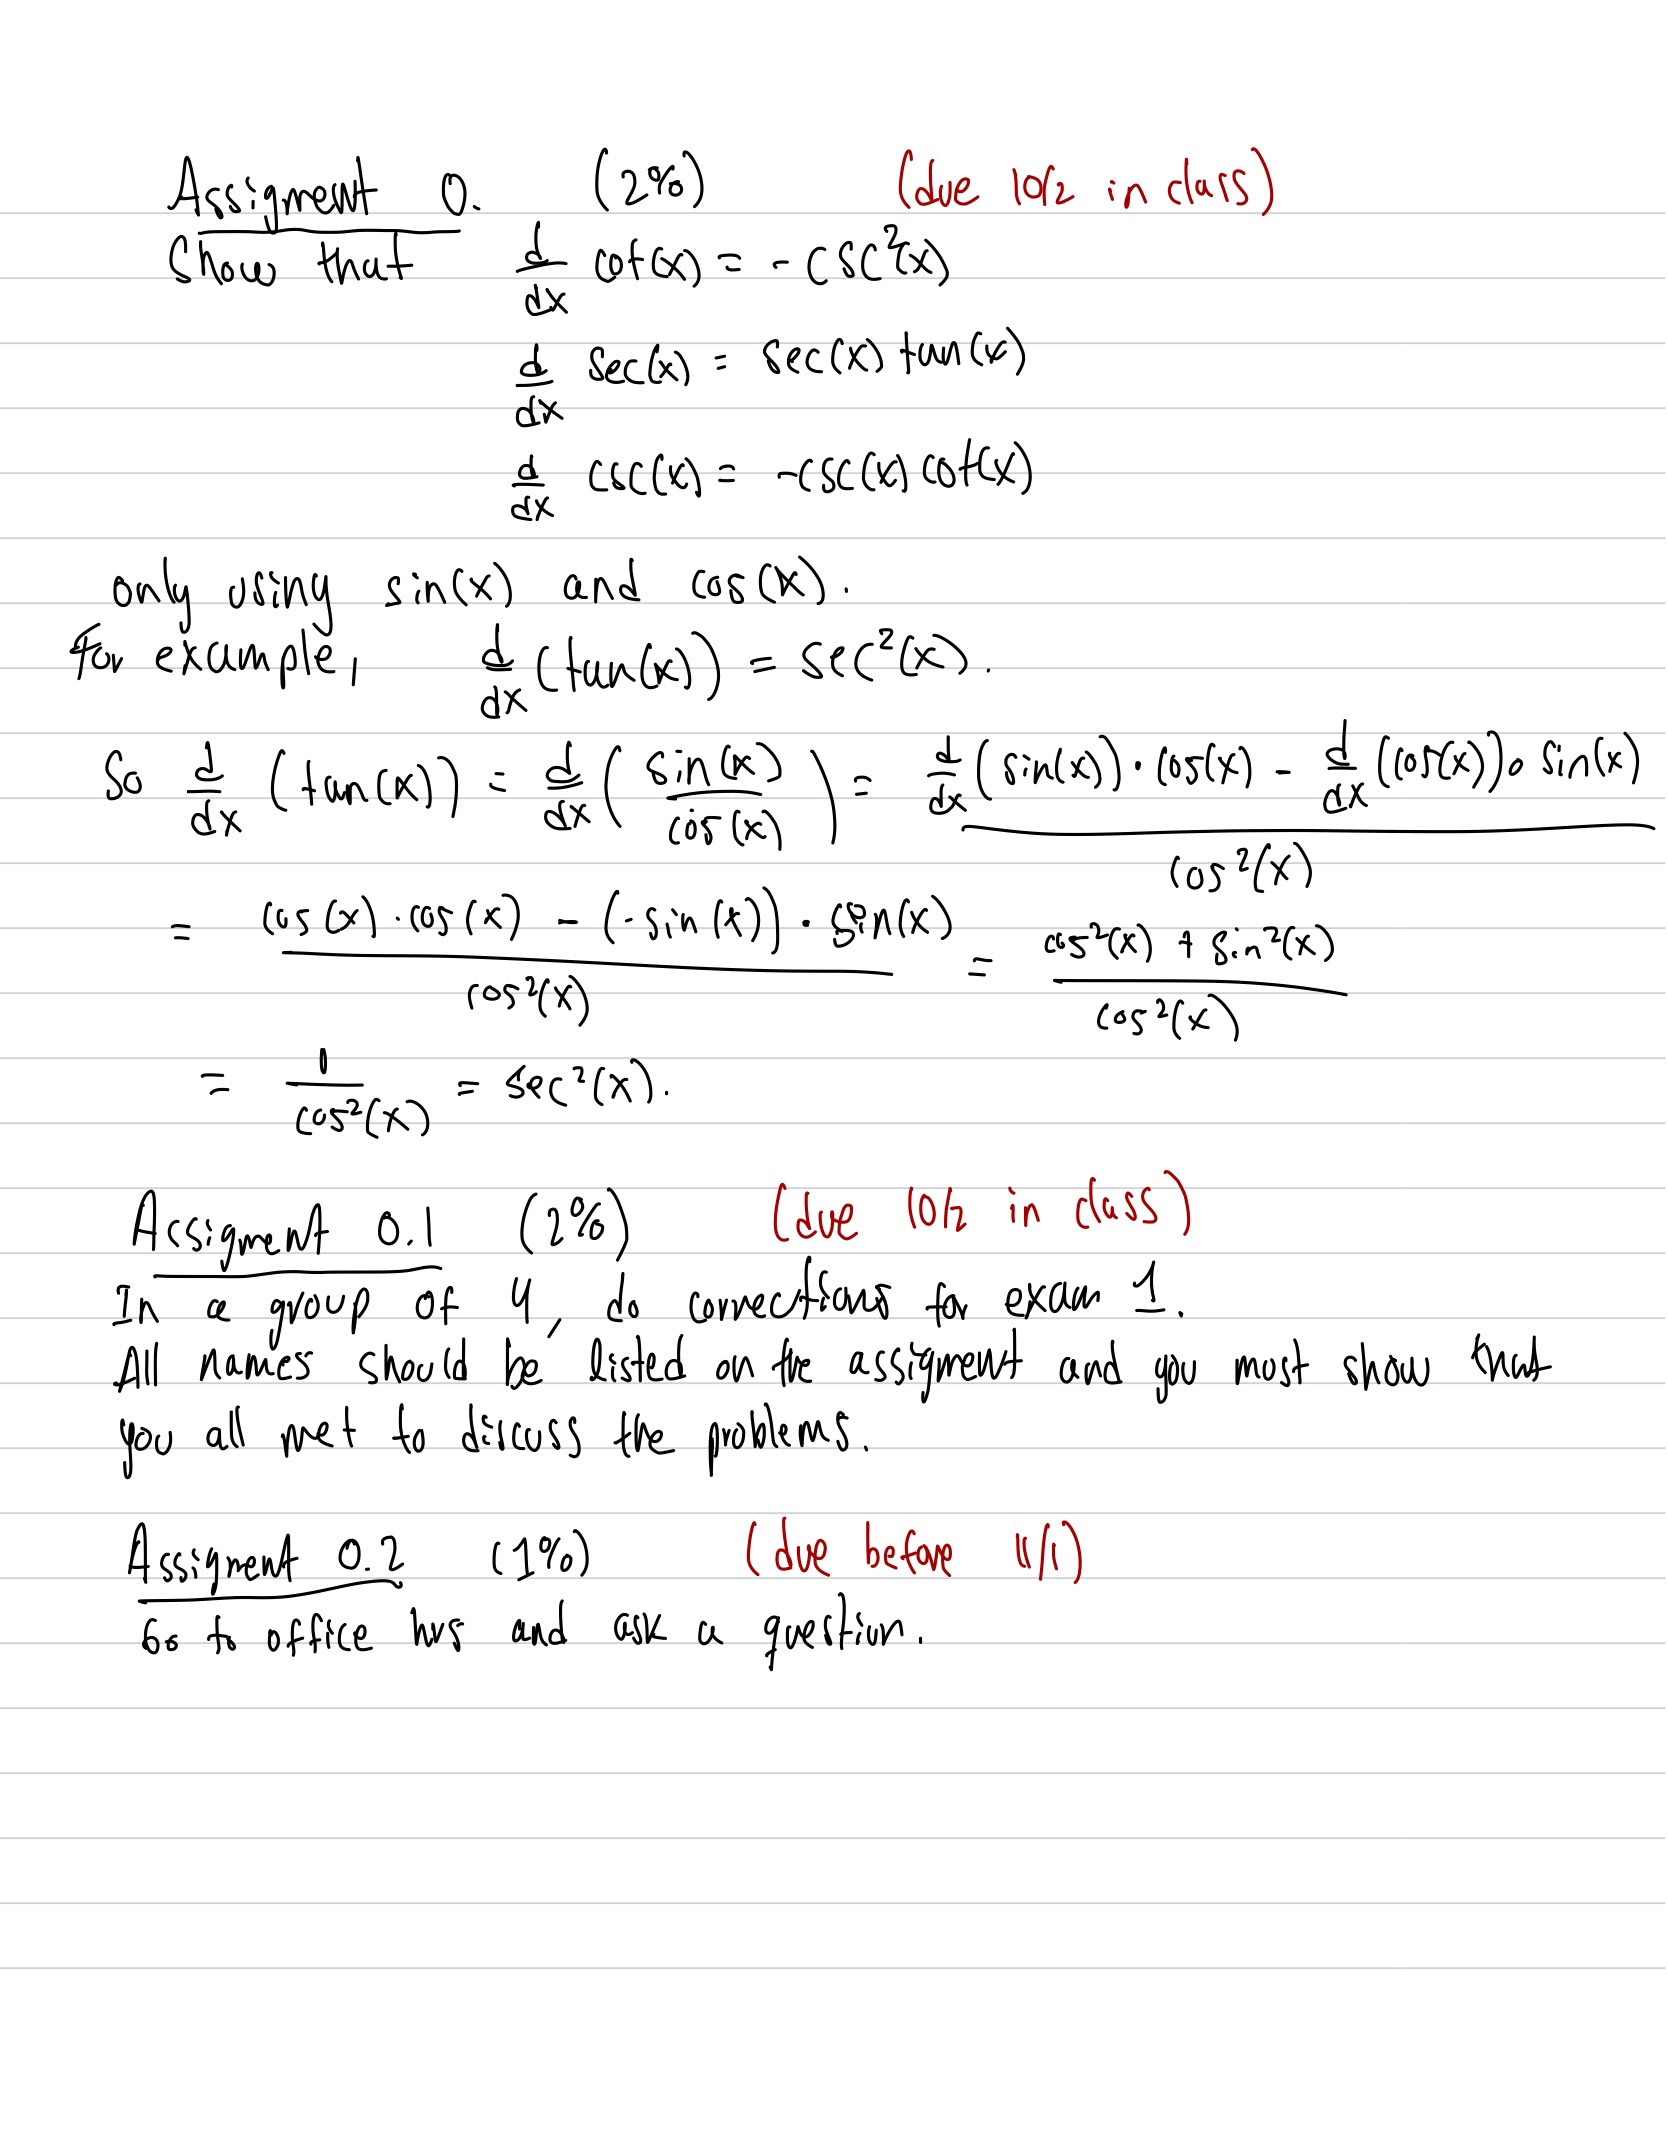 Assigment 0. (2%) (due 10/2 in class)
Show that d/dx cot(x) = -csc²(x)
d/dx sec(x) = sec(x) tan(x)
d/dx csc(x) = -csc(x) cot(x)
only using sin(x) and cos(x).
For example, d/dx (tan(x)) = sec²(x).
So d/dx (tan(x)) = d/dx ( sin(x) / cos(x) ) = d/dx (sin(x)) · cos(x) - d/dx (cos(x)) · sin(x) / cos²(x)
= cos(x) · cos(x) - (-sin(x)) · sin(x) / cos²(x) = cos²(x) + sin²(x) / cos²(x)
= 1 / cos²(x) = sec²(x).
Assigment 0.1 (2%) (due 10/2 in class)
In a group of 4, do corrections for exam 1.
All names should be listed on the assigment and you most show that
you all met to discuss the problems.
Assigment 0.2 (1%) (due before 11/1)
Go to office hrs and ask a question.